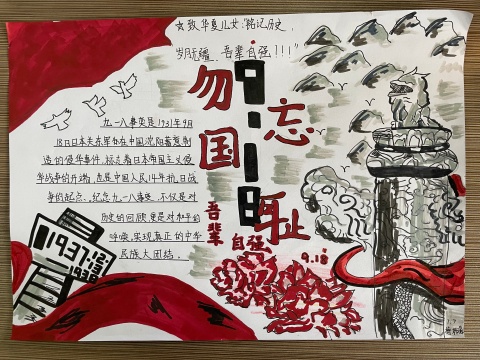 致华夏儿女:铭记历史,
岁月无疆 吾辈自强!!!"
勿忘
国耻
9.18
吾辈
自强
九一八事变是1931年9月
18日日本关东军在中国沈阳蓄意制
造的侵华事件,标志着日本帝国主义侵
华战争的开端,也是中国人民14年抗日战
争的起点。纪念九一八事变,不仅是对
历史的回顾,更是对和平的
呼唤,实现真正的中华
民族大团结。
1937.12.
13
1938
9.18